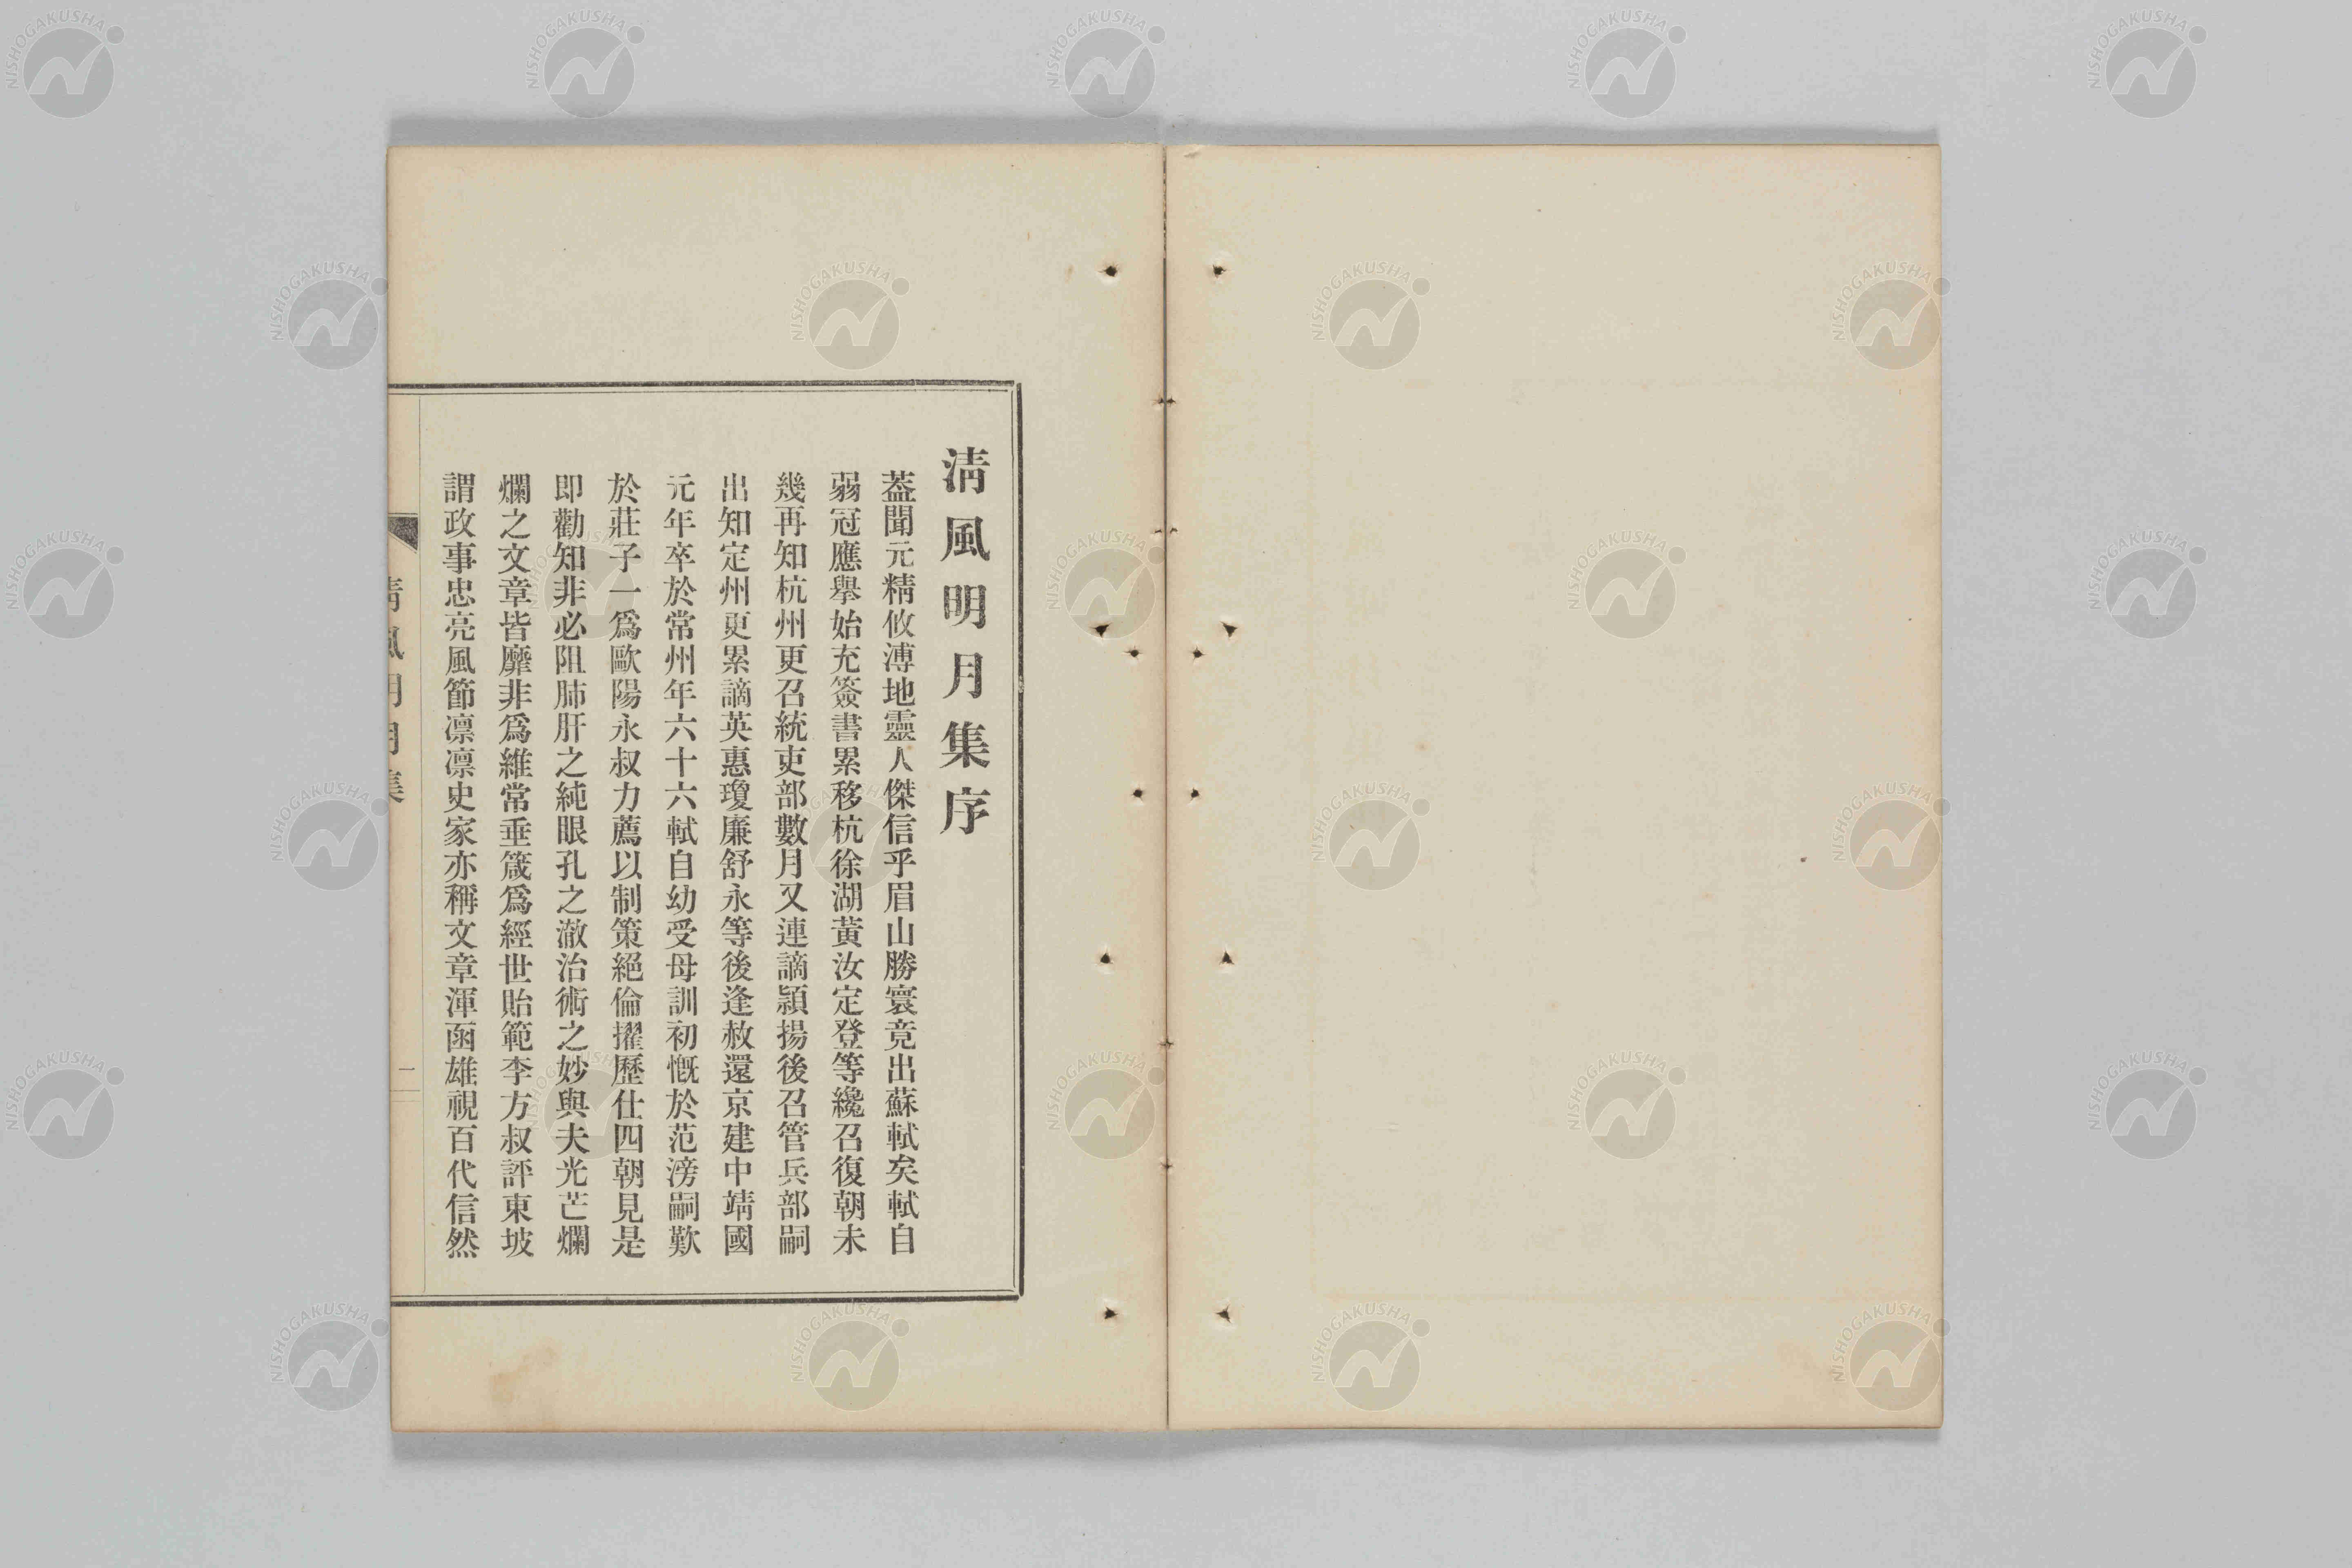 淸風明月集序
葢聞元精攸溥地靈人傑信乎眉山勝寰竟出蘇軾矣軾自
弱冠應擧始充簽書累移杭徐湖黃汝定登等纔召復朝未
幾再知杭州更召統吏部數月又連謫潁揚後召管兵部嗣
出知定州更累謫英惠瓊廉舒永等後逢赦還京建中靖國
元年卒於常州年六十六軾自幼受母訓初慨於范滂嗣歎
於莊子一爲歐陽永叔力薦以制策絕倫擢歷仕四朝見是
卽勸知非必阻肺肝之純眼孔之澈治術之妙與夫光芒爛
爛之文章皆靡非爲維常垂箴爲經世貽範李方叔評東坡
謂政事忠亮風節凛凛史家亦稱文章渾函雄視百代信然
淸風明月集
一
NISHOGAKUSHA